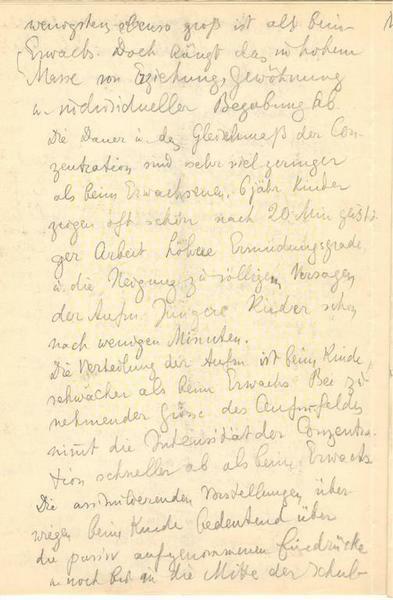 wenigstens ebenso groß ist als beim
Erwachs. Doch hängt das in hohem
Masse von Erziehung, Gewöhnung
u. individueller Begabung ab.
Die Dauer u. das Gleichmaß der Con-
zentration sind sehr viel geringer
als beim Erwachsenen. 6 jähr Kinder
zeigen oft schon nach 20 Min geisti-
ger Arbeit höhere Ermüdungsgrade
u. die Neigung zu völligem Versagen
der Aufm. Jüngere Kinder schon
nach wenigen Minuten.
Die Verteilung der Aufm ist beim Kinde
schwächer als beim Erwachs. Bei zu-
nehmender Grösse des Aufm.feldes
nimmt die Intensität der Conzentra-
tion schneller ab als beim Erwachs.
Die assimilierenden Vorstellungen über-
wiegen beim Kinde bedeutend über
die passiv aufgenommenen Eindrücke
u. noch bis in die Mitte der Schul-